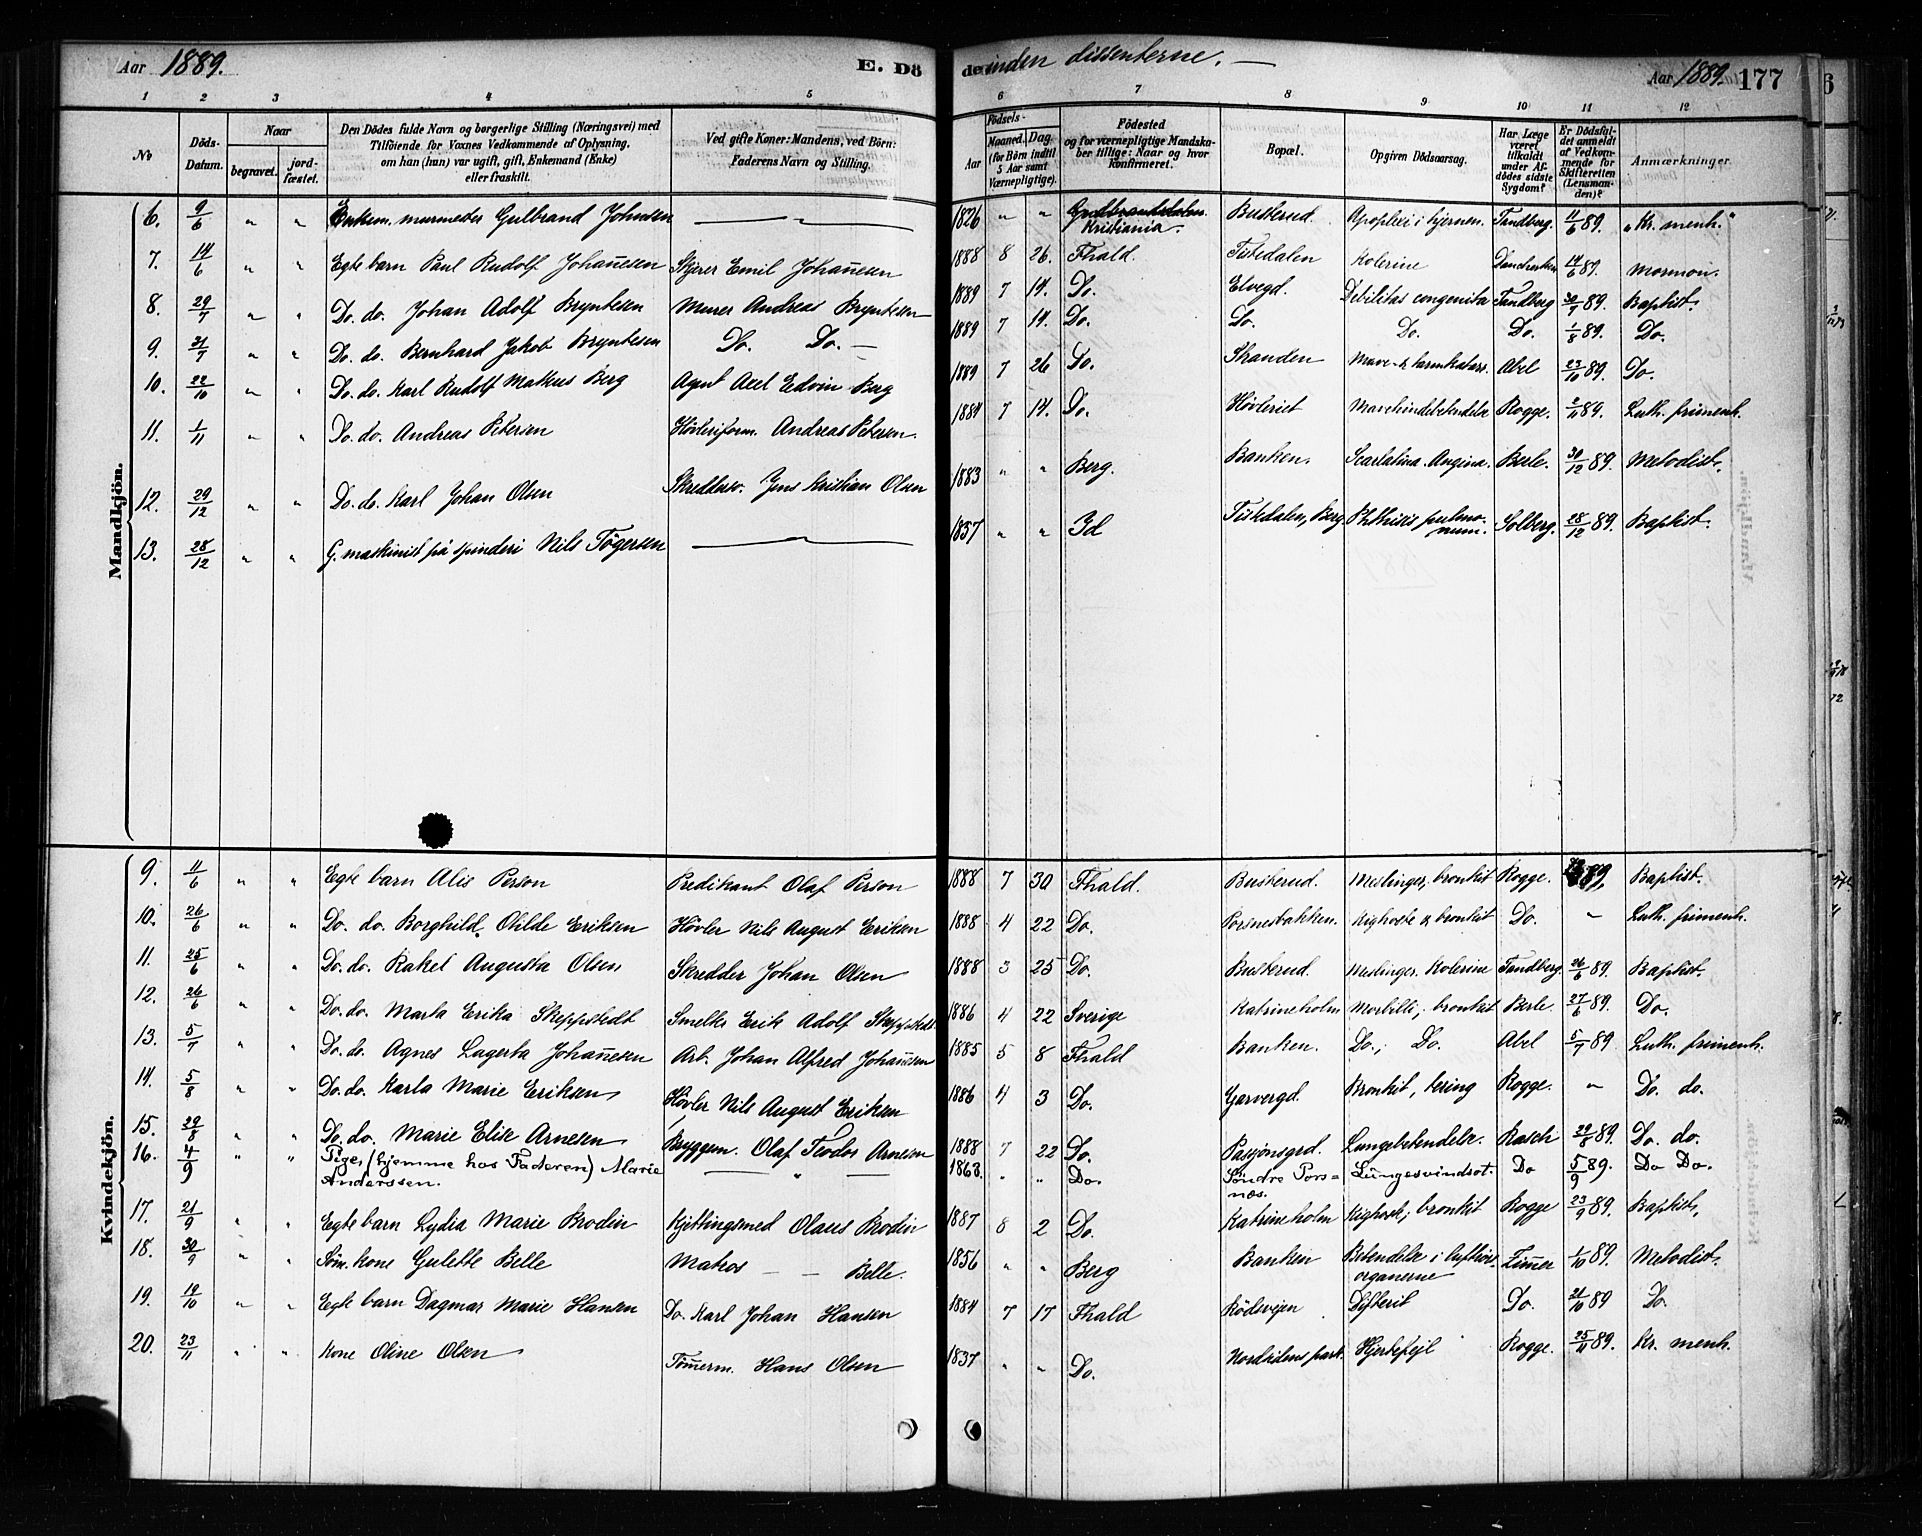 Aar 1889. E. Dö
de inden dissenterne. — Aar 1889. 177
1 2 3 4 5
6 7 8 9 10 11 12
No
Döds-Datum.
Naar
begravet.
jord-fæstet.
Den Dödes fulde Navn og borgerlige Stilling (Næringsvei) med
Tilföiende for Voxnes Vedkommende af Oplysning,
om han (hun) var ugift, gift, Enkemand (Enke)
eller fraskilt.
Ved gifte Koner: Mandens, ved Börn:
Faderens Navn og Stilling.
Födsels-
Aar
Maaned. Dag.
(for Börn indtil
5 Aar samt
Værnepligtige).
Födested
og for værnepligtige Mandska-
ber tillige: Naar og hvor
konfirmeret.
Bopæl.
Opgiven Dödsaarsag.
Har Læge
været
tilkaldt
under Af-
dödes sidste
Sygdom?
Er Dödsfal-
det anmeldt
af Vedkom-
mende for
Skifteretten
(Lensman-
den)?
Anmærkninger.
Mandkjön.
6. 9/6 " " Enkem. murmester Gulbrand Johnsen — " — 1826 " " Gudbrandsdalen. Kristiania. Buskerud. Apoplexi i hjernen. Tandberg. 11/6 89. "Kr. menh."
7. 14/6 " " Egte barn Paul Rudolf Johañesen Skjærer Emil Johañesen 1888 8 26. Fhald. Tistedalen Kolerine 14/6 89. Mormon.
8. 29/7 " " Do. do. Johan Adolf Bryntesen Murer Andreas Bryntesen 1889 7 14. Do. Elvegd. Debilitas congenita Tandberg 30/7 89. Baptist.
9. 31/7 " " Do. do. Bernhard Jakob Bryntesen Do. Do. — 1889 7 14. Do. Do. Do. Do. 1/8 89. Do.
10. 22/10 " " Do. do. Karl Rudolf Mateus Berg Agent Axel Edvin Berg 1889 7 26 Do. Stranden Mave- & tarmkatarr. Abel 23/10 89. Do.
11. 1/11 " " Do. do. Andreas Petersen Hövleriform. Andreas Petersen. 1884 7 14. Do. Hövleriet Rogge. 2/11 89. Luth. frimenh.
12. 29/12 " " Do. do. Karl Johan Olsen Skreddersv. Jens Kristian Olsen 1883 " " Berg. Banken. Scarlatina. Angina. Berle. 30/12 89. Metodist.
13. 28/12 " " G. maskinist på spinderi Nils Tögersen — " — 1837 " " Id Tistedalen, Berg Phthisis pulmo-num. Solberg. 28/12 89. Baptist.
Kvindekjön.
9. 11/6 " " Egte barn Alis Person Predikant Olaf Person 1888 7 30 Fhald. Buskerud. Meslinger, bronkit Rogge. 89, Baptist.
10. 26/6 " " Do. do. Borghild Otilde Eriksen Hövler Nils August Eriksen 1888 4 22 Do. Porsnesbakken. Kighoste & bronkit Do. " Luth. frimenh.
11. 25/6 " " Do. do. Rakel Augusta Olsen Skredder Johan Olsen 1888 3 25 Do. Buskerud. Meslinger. Kolerine Tandberg. 26/6 89. Baptist.
12. 26/6 " " Do. do. Marta Erika Skeppstedt Smelter Erik Adolf Skeppstedt 1886 4 22 Sverige Katrineholm Morbilli, bronkit Berle 27/6 89. Do.
13. 5/7 " " Do. do. Agnes Lagerta Johañesen Arb. Johan Alfred Johañesen 1885 5 8 Fhald Banken. Do., Do. Abel 5/7 89. Luth. frimenh.
14. 5/8 " " Do. do. Karla Marie Eriksen Hövler Nils August Eriksen 1886 4 3 Do. Garvergd. Bronkit, tering Rogge. " Do. do.
15. 29/8 " " Do. do. Marie Elise Arnesen Byggem. Olaf Teodor Arnesen 1888 7 22 Do. Pasjonsgrd. Lungebetendelse. Rasch 29/8 89. Do. do.
16. 4/9 " " Pige, (hjemme hos Faderen) Marie Anderssen. — " — 1863. " " Do. Söndre Pors=næs. Lungesvindsot. Do 5/9 89. Do Do.
17. 21/9 " " Egte barn Lydia Marie Brodin Kjettingsmed Olaus Brodin 1887 8 2 Do. Katrineholm Kighoste; bronkit Rogge 23/9 89. Baptist.
18. 30/9 " " Söm. kone Gulette Belle Matros — — Belle. 1856 " " Berg Banken Betendelse i luftveis-organerne Zim̃er 1/10 89. Metodist.
19. 19/10 " " Egte barn Dagmar Marie Hansen Do. Karl Johan Hansen 1884 7 17 Fhald Rödsvejen Difterit Do. 21/10 89 Do.
20. 23/11 " " Kone Oline Olsen Töm̃erm. Hans Olsen 1837 " " Do. Nordsidens park Hjertefejl Rogge. 25/11 89. Kr. menh.